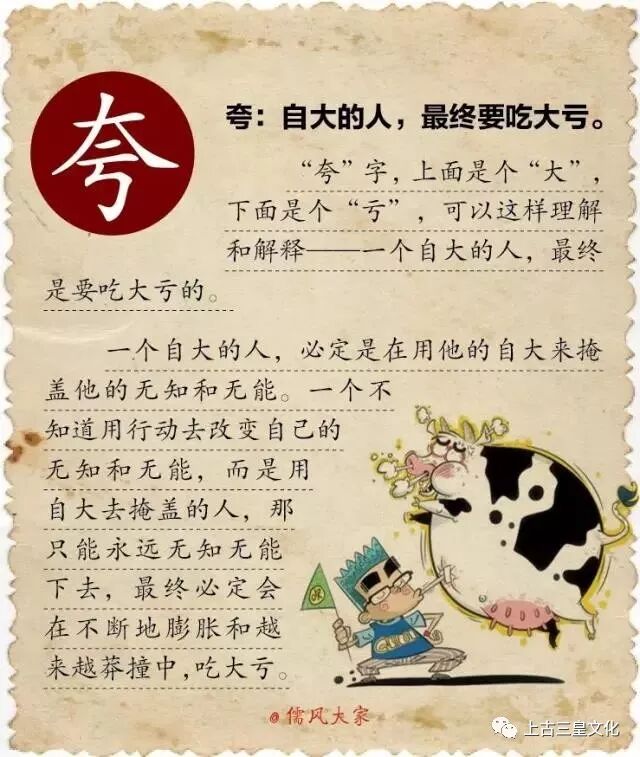 夸
夸：自大的人，最终要吃大亏。
“夸”字，上面是个“大”，
下面是个“亏”，可以这样理解
和解释——一个自大的人，最终
是要吃大亏的。
一个自大的人，必定是在用他的自大来掩
盖他的无知和无能。一个不
知道用行动去改变自己的
无知和无能，而是用
自大去掩盖的人，那
只能永远无知无能
下去，最终必定会
在不断地膨胀和越
来越莽撞中，吃大亏。
@儒风大家
上古三皇文化